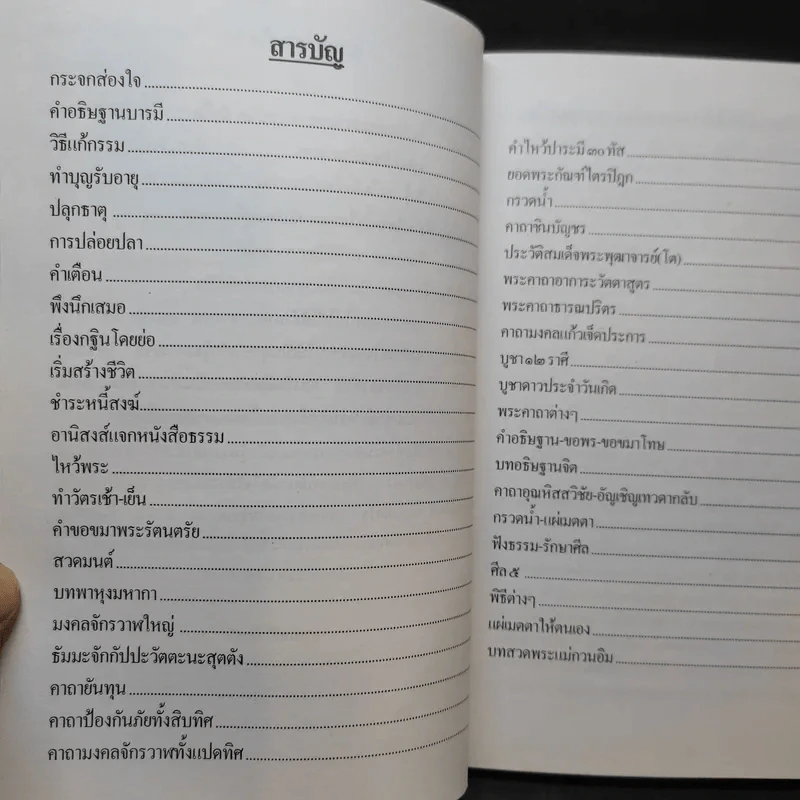 สารบัญ
กระจกส่องใจ
คำอธิษฐานบารมี
วิธีแก้กรรม
ทำบุญรับอายุ
ปลุกธาตุ
การปล่อยปลา
คำเตือน
พึงนึกเสมอ
เรื่องกฐินโดยย่อ
เริ่มสร้างชีวิต
ชำระหนี้สงฆ์
อานิสงส์แจกหนังสือธรรม
ไหว้พระ
ทำวัตรเช้า-เย็น
คำขอขมาพระรัตนตรัย
สวดมนต์
บทพาหุงมหากา
มงคลจักรวาฬใหญ่
ธัมมะจักกัปปะวัตตะนะสุตตัง
คาถายันทุน
คาถาป้องกันภัยทั้งสิบทิศ
คาถามงคลจักรวาฬทั้งแปดทิศ
คำไหว้ปาระมี ๓๐ ทัส
ยอดพระกัณฑ์ไตรปิฎก
กรวดน้ำ
คาถาชินบัญชร
ประวัติสมเด็จพระพุฒาจารย์(โต)
พระคาถาอาการะวัตตาสูตร
พระคาถาธารณปริตร
คาถามงคลแก้วเจ็ดประการ
บูชา ๑๒ ราศี
บูชาดาวประจำวันเกิด
พระคาถาต่างๆ
คำอธิษฐาน-ขอพร-ขอขมาโทษ
บทอธิษฐานจิต
คาถาอุณหิสสวิชัย-อัญเชิญเทวดากลับ
กรวดน้ำ-แผ่เมตตา
ฟังธรรม-รักษาศีล
ศีล ๕
พิธีต่างๆ
แผ่เมตตาให้ตนเอง
บทสวดพระแม่กวนอิม